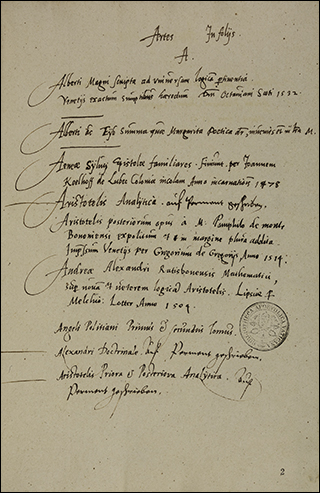 Artes In folijs
A.
Alberti Magni scripta ad universam logicam pertinentia
Venetijs
Alberti de Eyb Summa quae Margarita Poetica
Aeneae Sylvij Epistolae familiares. per Joannem
Koelhoff de Lubec Coloniae incolam Anno incarnationis 1478
Aristotelis Analytica. auf Perment geschriben.
Aristotelis posteriorum opus à M. Pamphilo de monte
Bononiensi expositum et in margine plura addita
Impressum Venetijs per Gregorium de Gregorijs Anno
Andreae Alexandri Ratisbonensis Mathematici,
super novam et veterem logicam Aristotelis. Lipciae
Melchior Lotter Anno 1504.
Angeli Politiani Primus et secundus Tomus.
Alexandri Doctrinale. auf Perment geschrieben.
Aristotelis Priora et Posteriora Analytica. auf
Perment geschrieben.
2